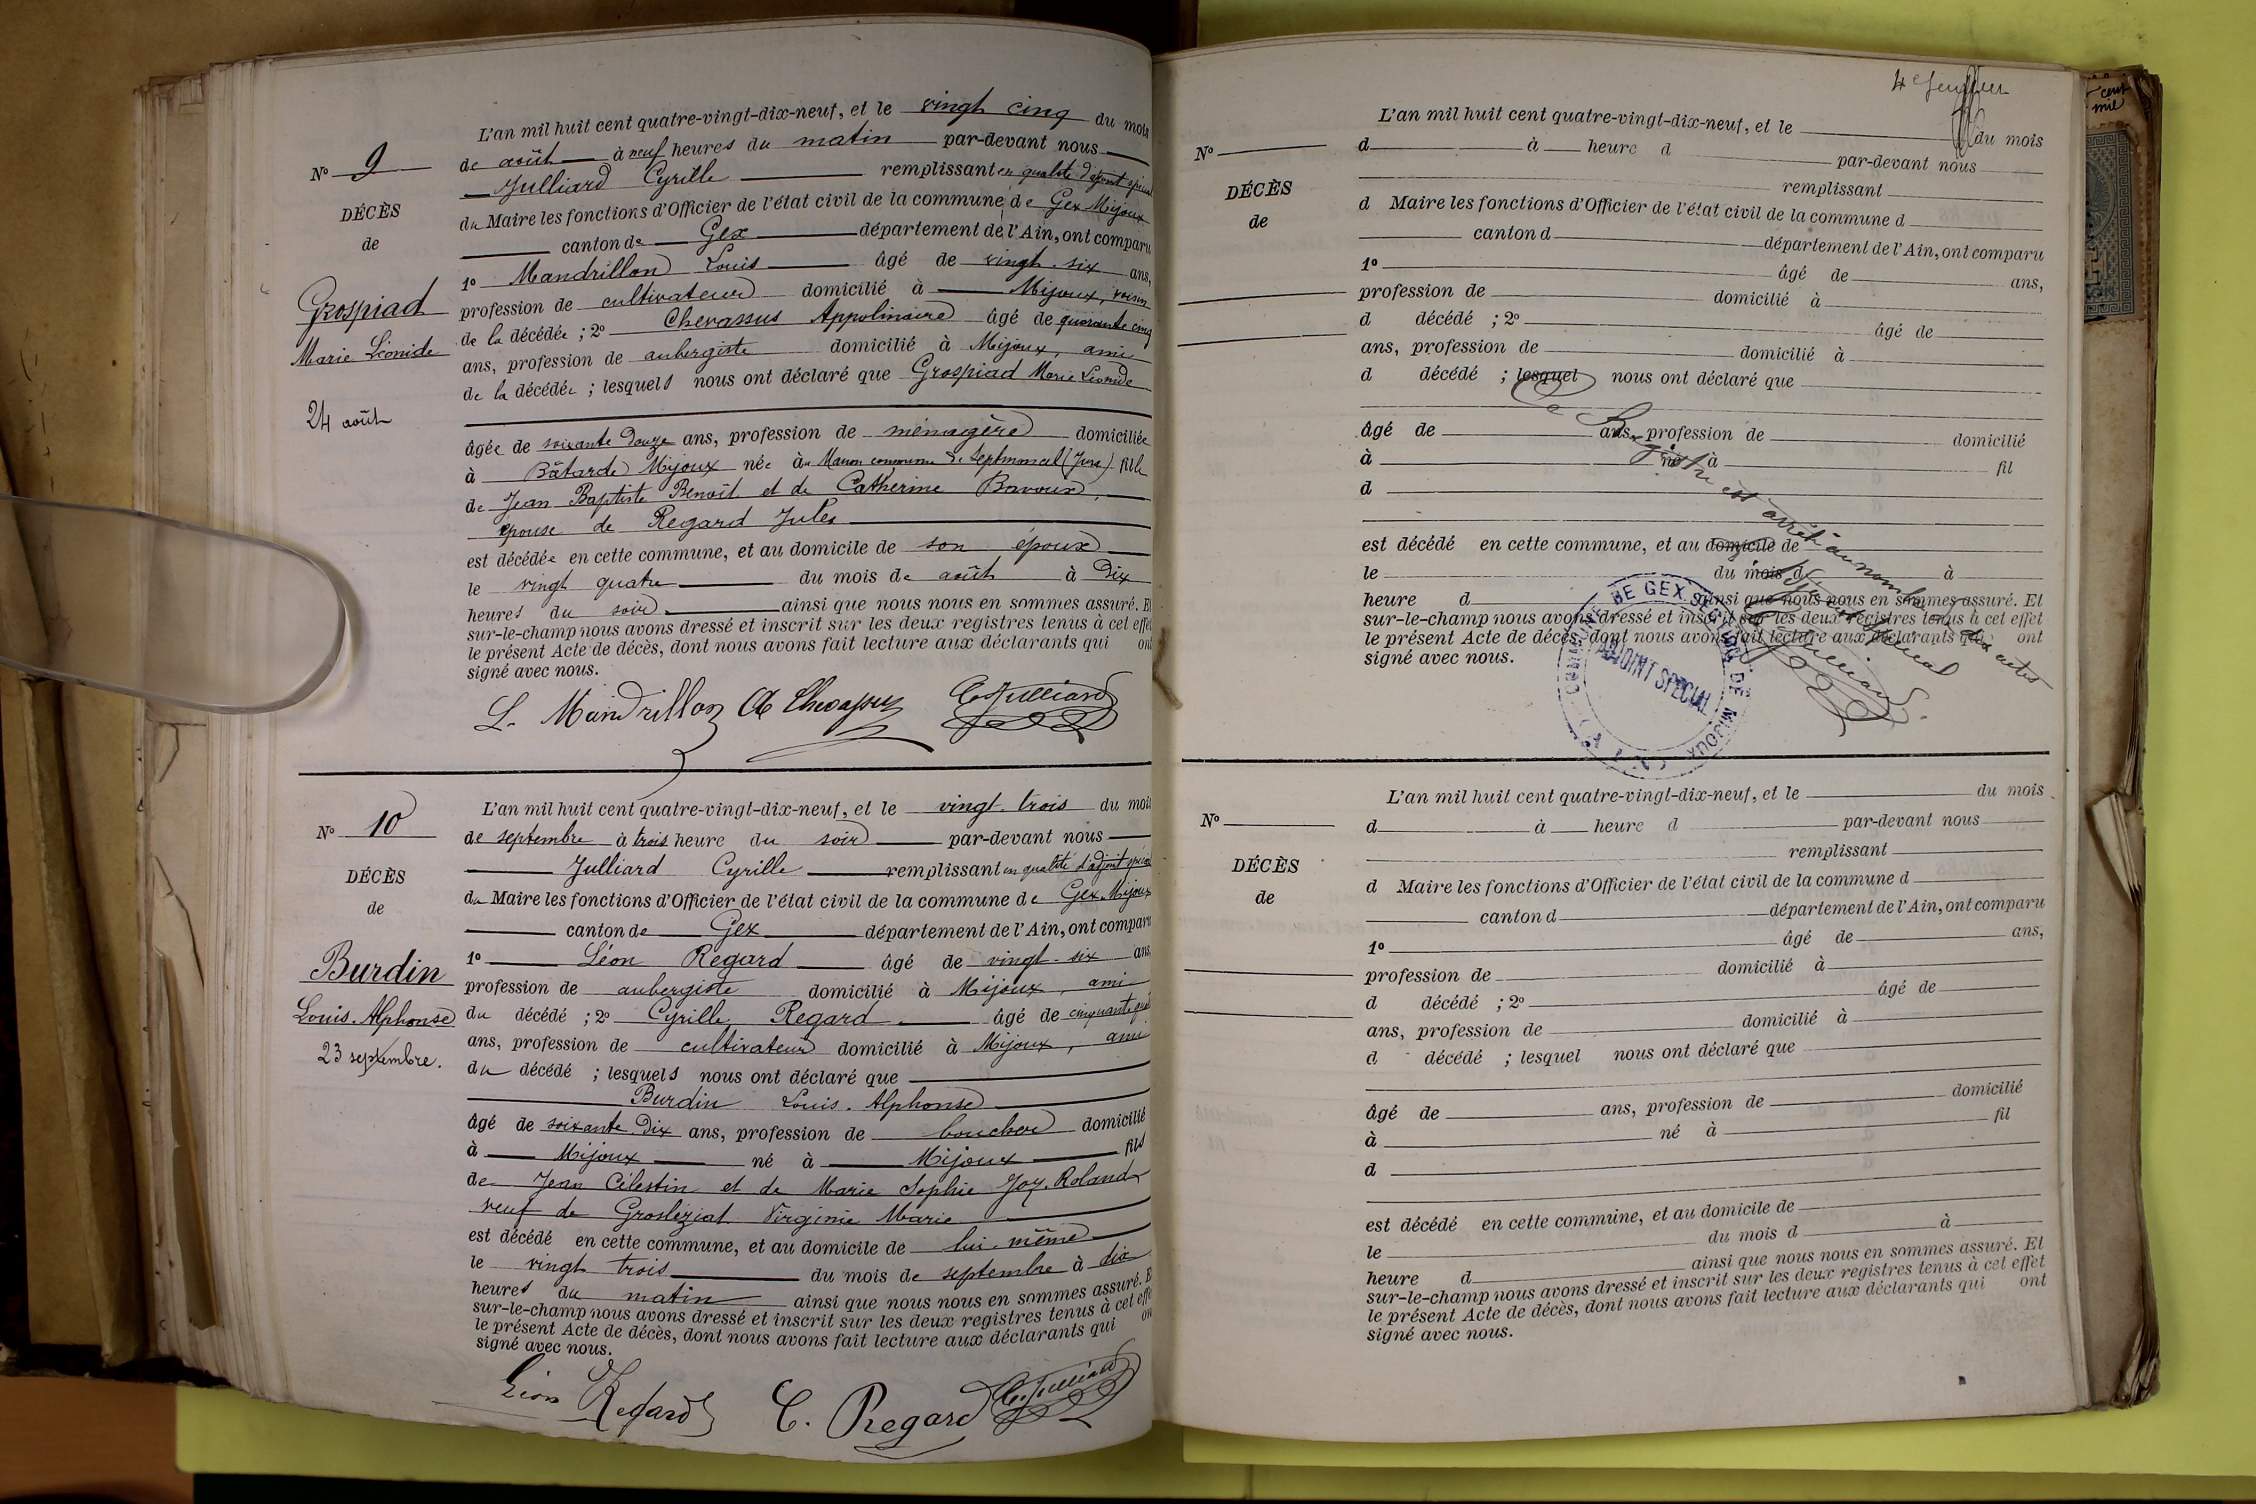 L'an mil huit cent quatre-vingt-dix-neuf, et le vingt cinq du mois
N° 9
de août à neuf heures du matin par-devant nous
Julliard Cyrille remplissant en qualité d'adjoint spécial
DÉCÈS
du Maire les fonctions d'Officier de l'état civil de la commune de Gex Mijoux
de
canton de Gex département de l'Ain, ont comparu
1° Mandrillon Louis âgé de vingt-six ans,
Grospiad
profession de cultivateur domicilié à Mijoux, voisin
de la décédée ; 2° Chevassus Appolinaire âgé de quarante cinq
Marie Léonide
ans, profession de aubergiste domicilié à Mijoux, ami
de la décédée ; lesquels nous ont déclaré que Grospiad Marie Léonide
24 août
âgée de soixante douze ans, profession de ménagère domiciliée
à Bâtarde Mijoux née à commune de Septmoncel (Jura) fille
de Jean Baptiste Benoît et de Catherine Bavoux,
épouse de Regard Jules
est décédée en cette commune, et au domicile de son époux
le vingt quatre du mois de août à dix
heures du soir ainsi que nous nous en sommes assuré. Et
sur-le-champ nous avons dressé et inscrit sur les deux registres tenus à cet effet
le présent Acte de décès, dont nous avons fait lecture aux déclarants qui ont
signé avec nous.
L. Mandrillon A Chevassus C. Julliard
L'an mil huit cent quatre-vingt-dix-neuf, et le vingt-trois du mois
N° 10
de septembre à trois heure du soir par-devant nous
Julliard Cyrille remplissant en qualité d'adjoint spécial
DÉCÈS
du Maire les fonctions d'Officier de l'état civil de la commune de Gex Mijoux
de
canton de Gex département de l'Ain, ont comparu
1° Léon Regard âgé de vingt-six ans,
Burdin
profession de aubergiste domicilié à Mijoux, ami
Louis-Alphonse
du décédé ; 2° Cyrille Regard âgé de cinquante
ans, profession de cultivateur domicilié à Mijoux, ami
23 septembre.
du décédé ; lesquels nous ont déclaré que
Burdin Louis-Alphonse
âgé de soixante-dix ans, profession de boucher domicilié
à Mijoux né à Mijoux fils
de Jean Célestin et de Marie Sophie Joz-Roland
veuf de Grosléziat Virginie Marie
est décédé en cette commune, et au domicile de lui-même
le vingt trois du mois de septembre à dix
heures du matin ainsi que nous nous en sommes assuré. E
sur-le-champ nous avons dressé et inscrit sur les deux registres tenus à cet effe
le présent Acte de décès, dont nous avons fait lecture aux déclarants qui on
signé avec nous.
Léon Regard C. Regard C. Julliard
cent
mil
L'an mil huit cent quatre-vingt-dix-neuf, et le du mois
N°
d à heure d par-devant nous
remplissant
DÉCÈS
d Maire les fonctions d'Officier de l'état civil de la commune d
de
canton d département de l'Ain, ont comparu
1° âgé de ans,
profession de domicilié à
d décédé ; 2° âgé de
ans, profession de domicilié à
d décédé ; lesquel nous ont déclaré que
âgé de ans, profession de domicilié
à né à fil
d
est décédé en cette commune, et au domicile de
le du mois d à
heure d ainsi que nous nous en sommes assuré. Et
sur-le-champ nous avons dressé et inscrit sur les deux registres tenus à cet effet
le présent Acte de décès, dont nous avons fait lecture aux déclarants qui ont
signé avec nous.
Ce Registre est arrêté au nombre de dix actes
C. Julliard
COMMUNE DE GEX. SECTION DE MIJOUX
ADJOINT SPECIAL
L'an mil huit cent quatre-vingt-dix-neuf, et le du mois
N°
d à heure d par-devant nous
remplissant
DÉCÈS
d Maire les fonctions d'Officier de l'état civil de la commune d
de
canton d département de l'Ain, ont comparu
1° âgé de ans,
profession de domicilié à
d décédé ; 2° âgé de
ans, profession de domicilié à
d décédé ; lesquel nous ont déclaré que
âgé de ans, profession de domicilié
à né à fil
d
est décédé en cette commune, et au domicile de
le du mois d à
heure d ainsi que nous nous en sommes assuré. Et
sur-le-champ nous avons dressé et inscrit sur les deux registres tenus à cet effet
le présent Acte de décès, dont nous avons fait lecture aux déclarants qui ont
signé avec nous.